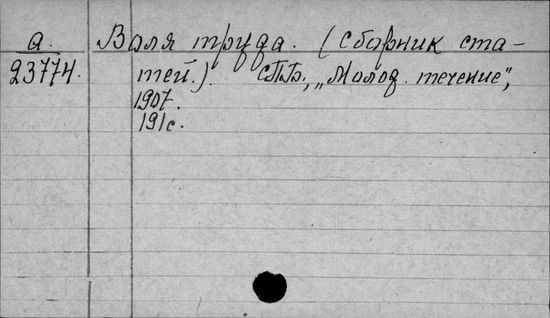 а. Воля труда. (Сборник ста-
23774. тей.). СПБ., „Молод. течение",
1907.
191с.